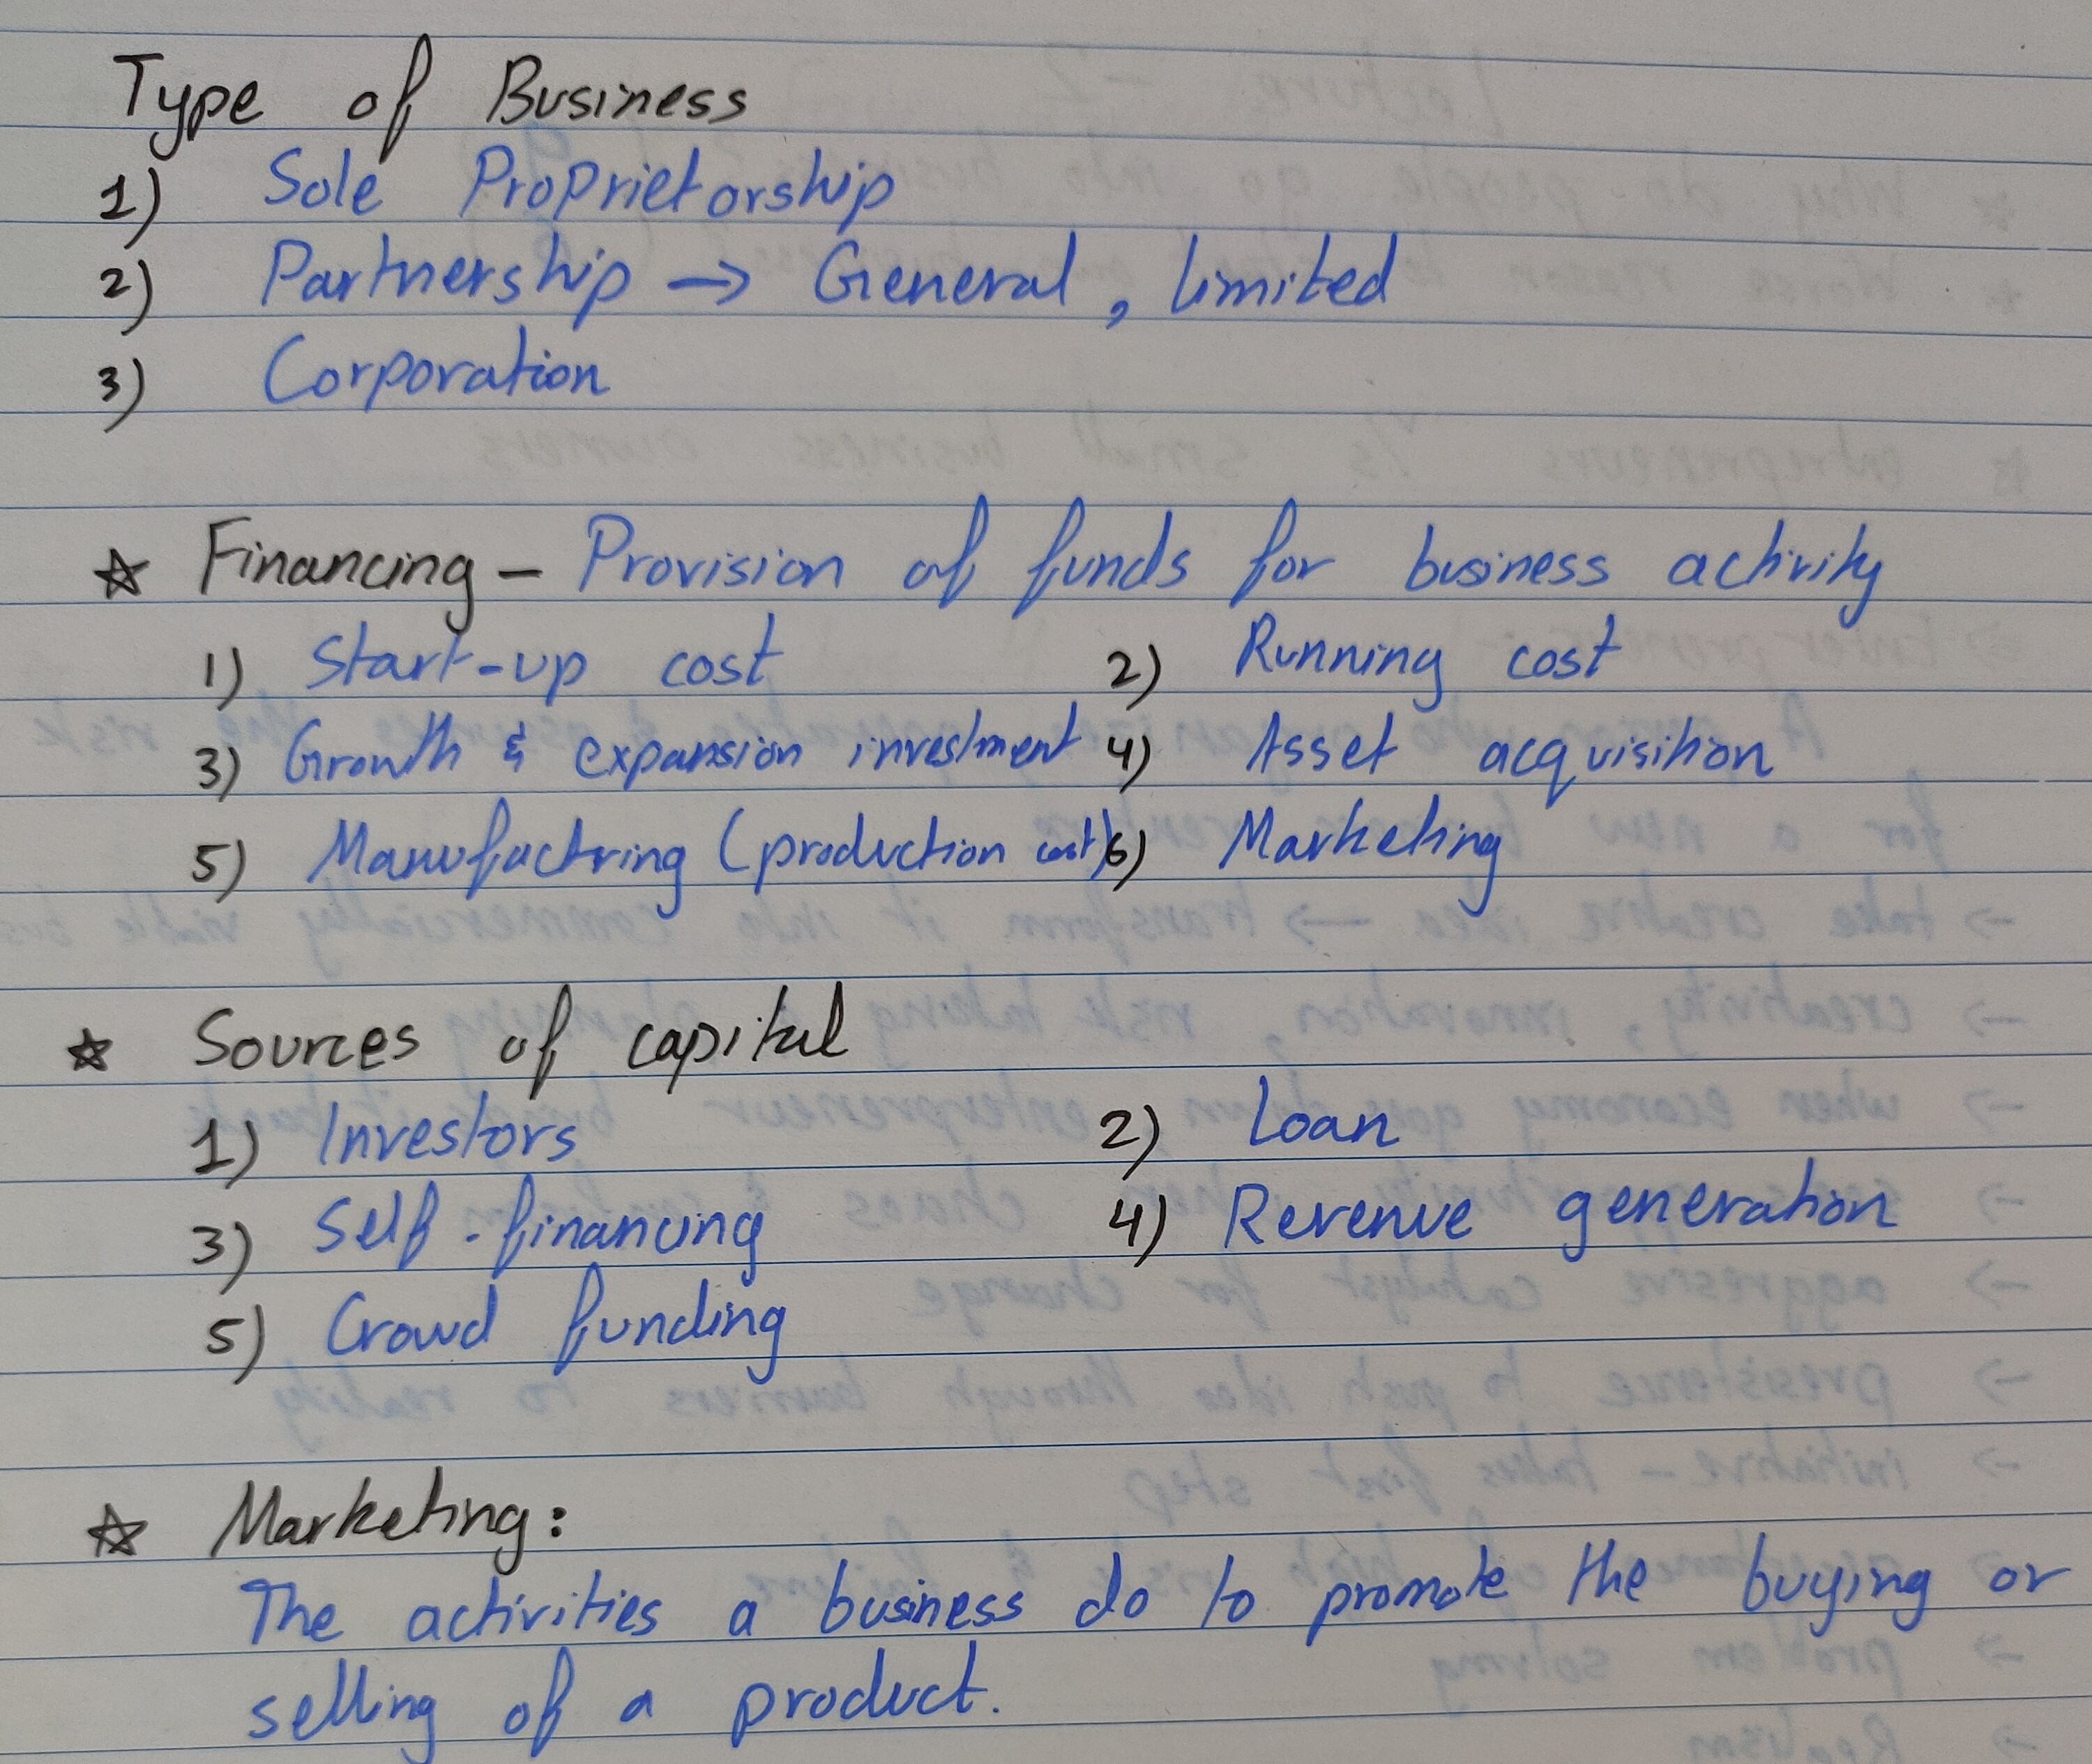 Type of Business
1) Sole Proprietorship
2) Partnership → General, limited
3) Corporation
☆ Financing – Provision of funds for business activity
1) Start-up cost 2) Running cost
3) Growth & expansion investment 4) Asset acquisition
5) Manufactring (production cost) 6) Marketing
☆ Sources of capital
1) Investors 2) Loan
3) Self-financing 4) Revenue generation
5) Crowd funding
☆ Marketing:
The activities a business do to promote the buying or
selling of a product.